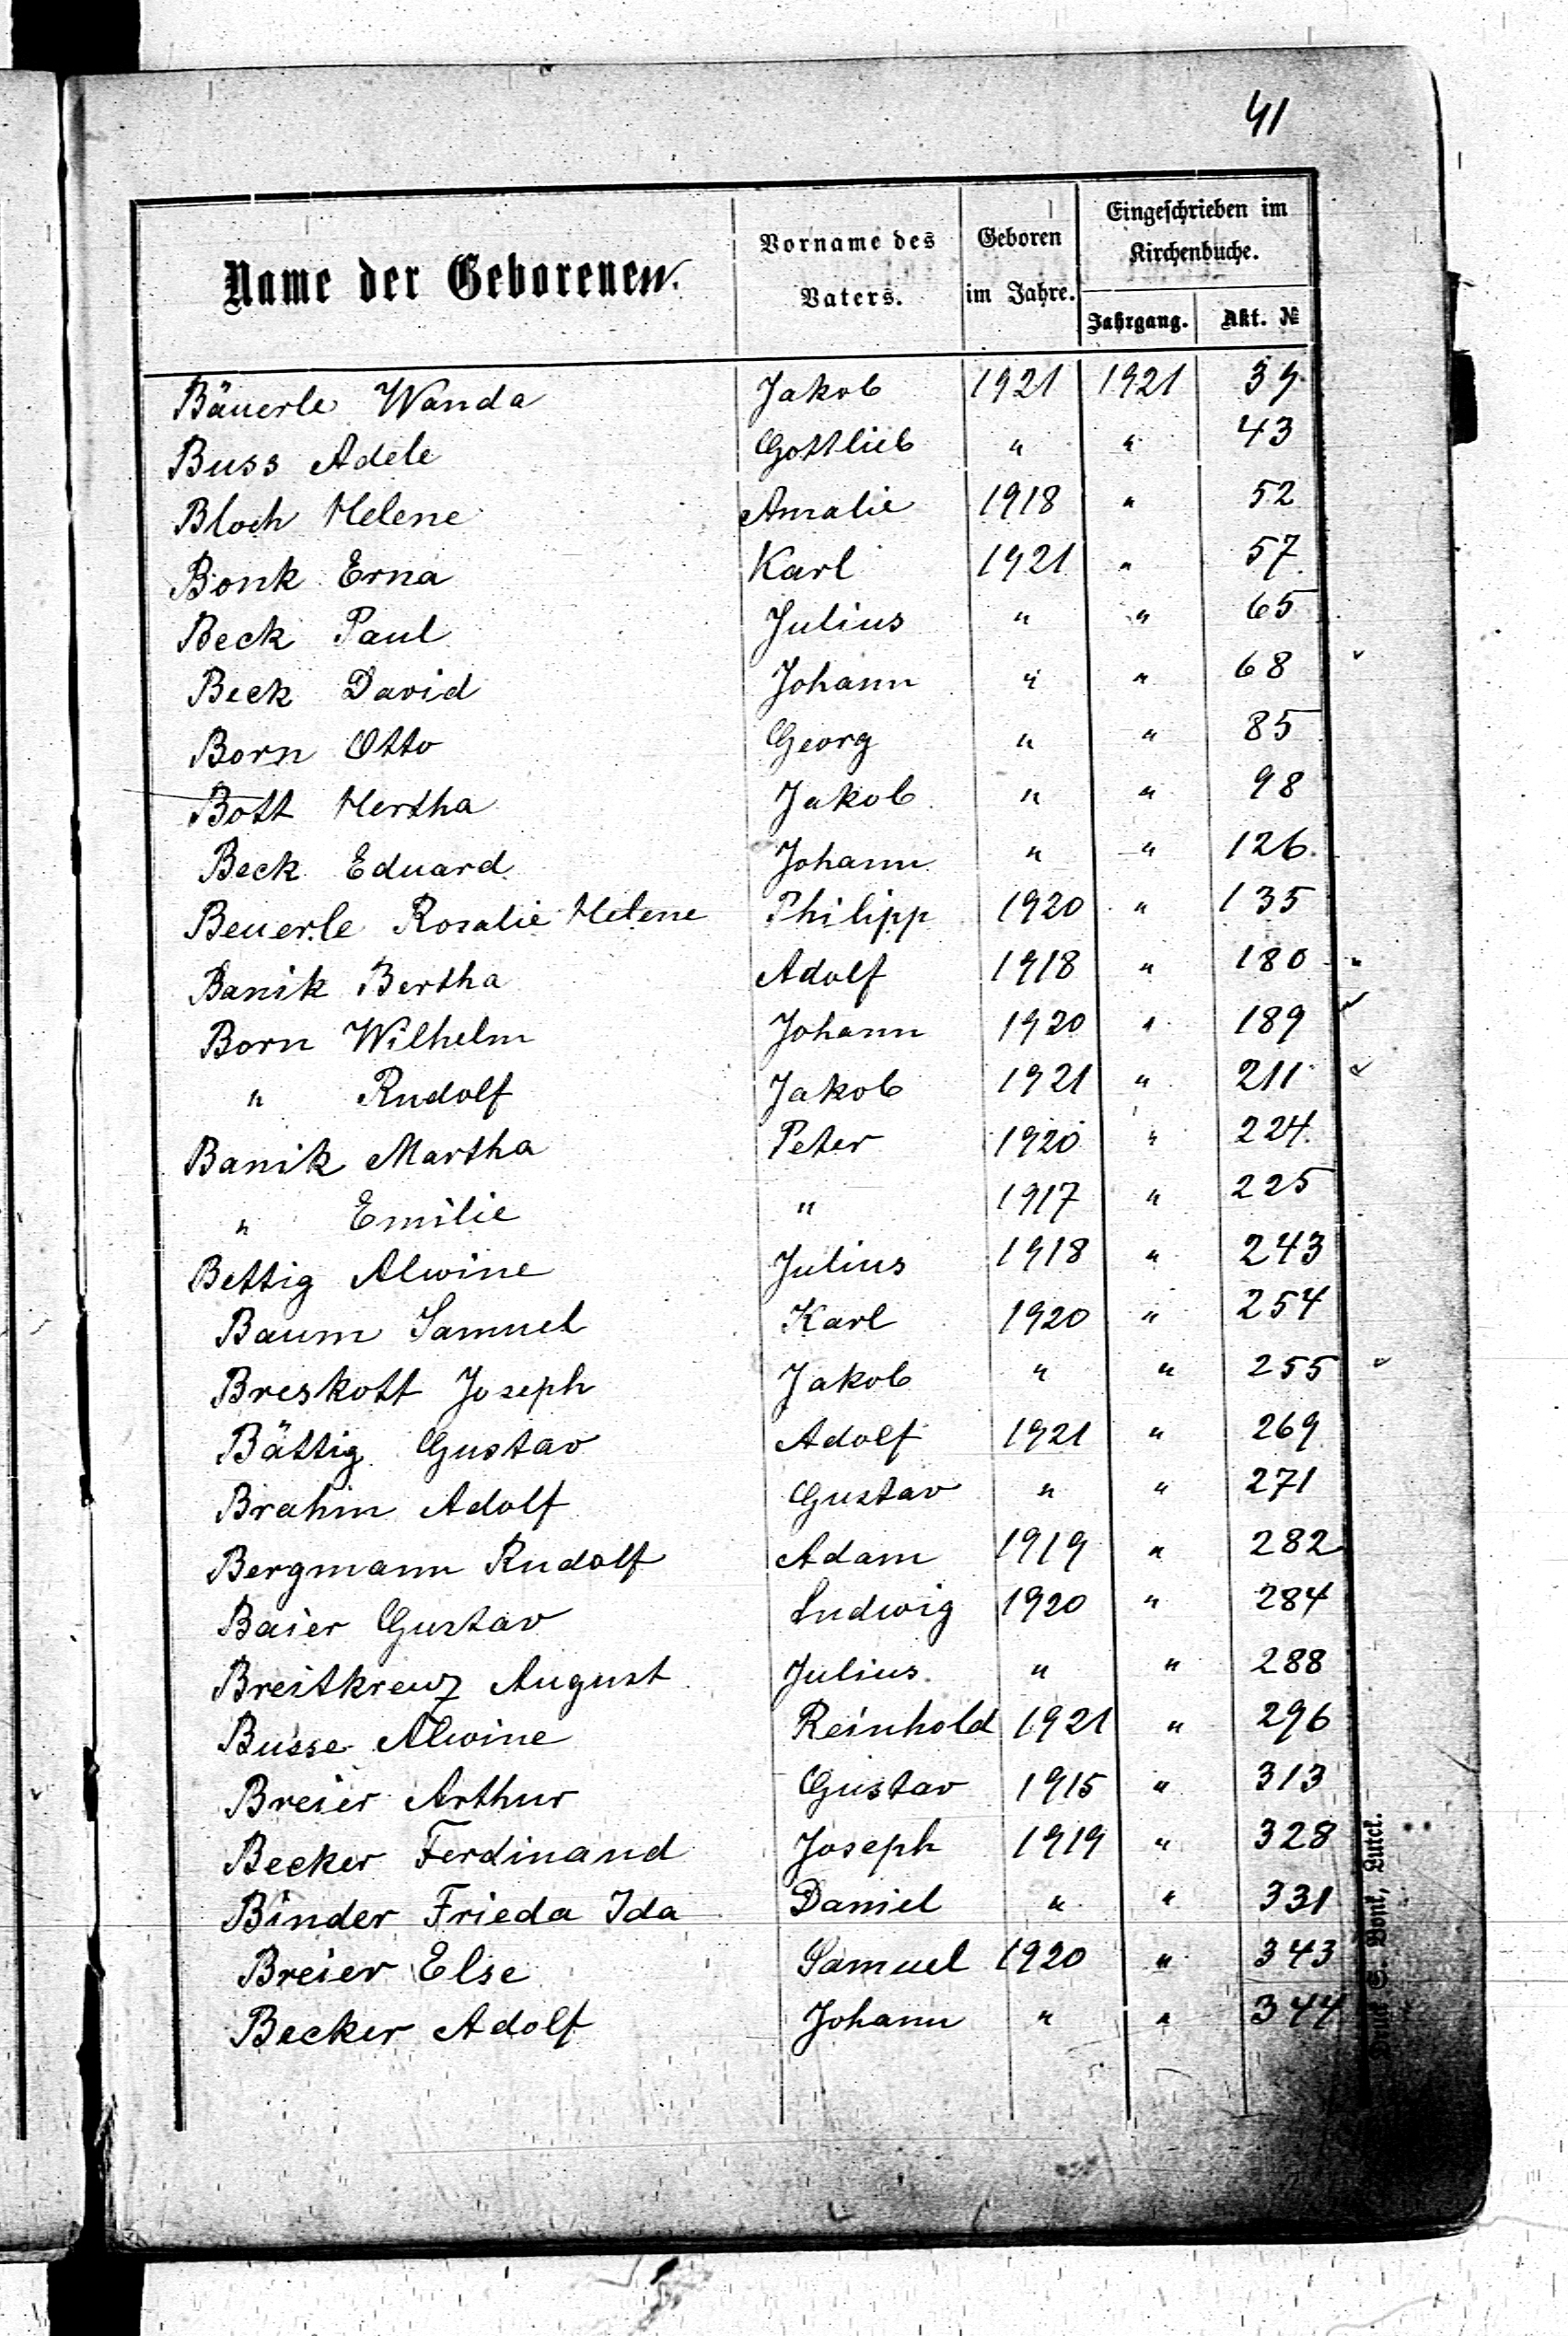 41
Name der Geborenen.
Vorname des Vaters.
Geboren im Jahre.
Eingeschrieben im Kirchenbuche.
Jahrgang. Akt. №
Bäuerle Wanda Jakob 1921 1921 39
Buss Adele Gottlieb " " 43
Bloch Helene Amalie 1918 " 52
Bonk Erna Karl 1921 " 57
Beck Paul Julius " " 65
Beck David Johann " " 68
Born Otto Georg " " 85
Bott Hertha Jakob " " 98
Beck Eduard Johann " " 126
Beuerle Rosalie Helene Philipp 1920 " 135
Banik Bertha Adolf 1918 " 180
Born Wilhelm Johann 1920 " 189
" Rudolf Jakob 1921 " 211
Banik Martha Peter 1920 " 224
" Emilie " 1917 " 225
Bettig Alwine Julius 1918 " 243
Baum Samuel Karl 1920 " 254
Breskott Joseph Jakob " " 255
Bättig Gustav Adolf 1921 " 269
Brahm Adolf Gustav " " 271
Bergmann Rudolf Adam 1919 " 282
Baier Gustav Ludwig 1920 " 284
Breitkreuz August Julius " " 288
Busse Alwine Reinhold 1921 " 296
Breier Arthur Gustav 1915 " 313
Becker Ferdinand Joseph 1919 " 328
Binder Frieda Ida Daniel " " 331
Breier Else Samuel 1920 " 343
Becker Adolf Johann " " 344
Druck E. Bonk, Luck.